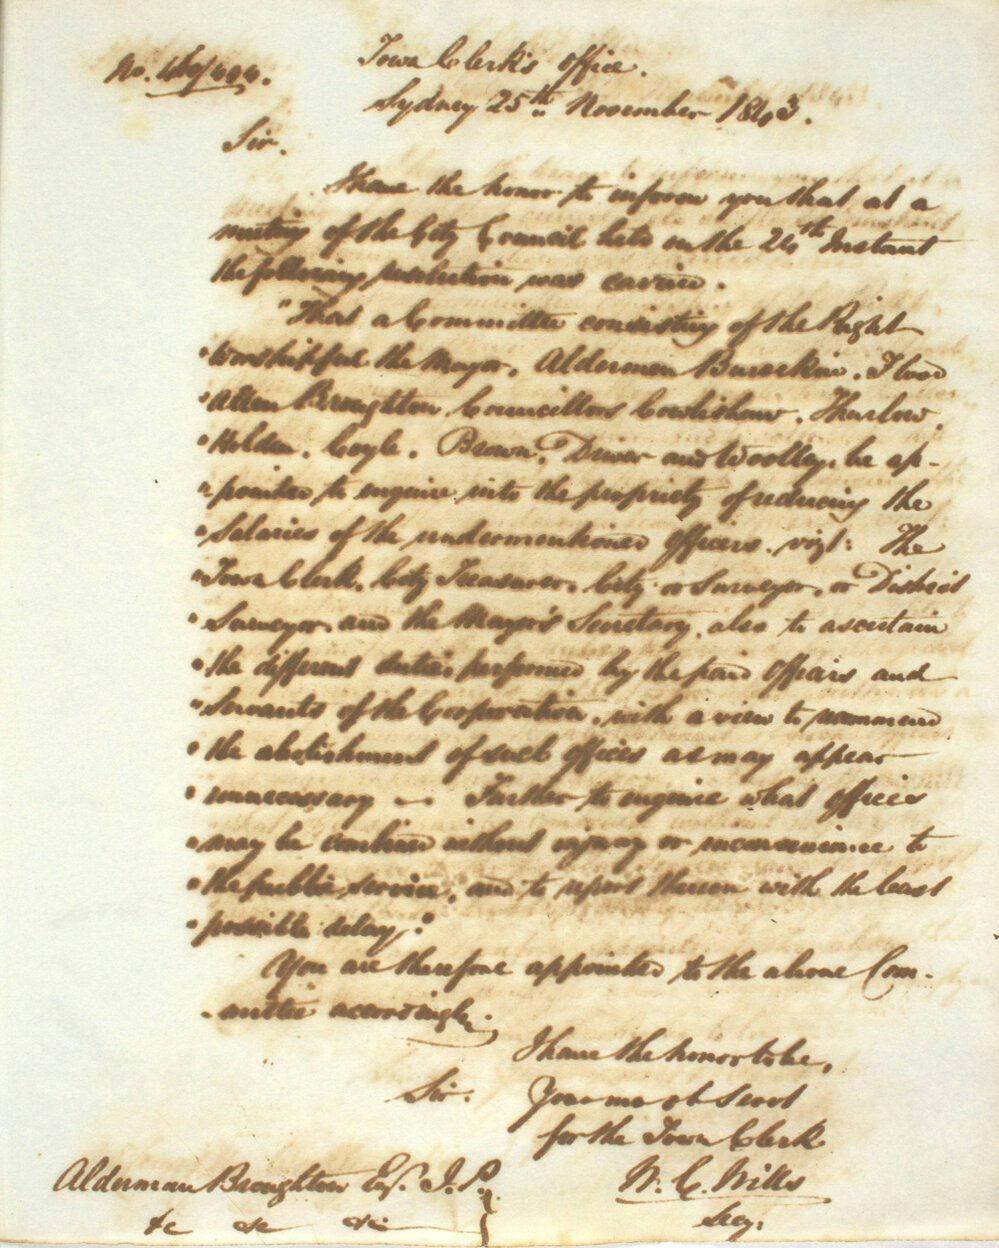 Town Clerk's Office.
Sydney 25th November 1843.
Sir.
I have the honor to inform you that at a
meeting of the City Council held on the 24th Instant
the following resolution was carried.
"That a Committee consisting of the Right
"Worshipful the Mayor, Alderman . Flood
"Allen Broughton, Councillors Cowlishaw, Thurlow,
"Holden, Coyle, Brown, Driver and Woolley, be ap-
"pointed to enquire into the propriety of reducing the
"Salaries of the undermentioned officers. vizt: The
"Town Clerk, City Treasurer, City or Surveyor, or District
"Surveyor, and the Mayor's Secretary, also to ascertain
"the different duties performed by the paid officers and
"Servants of the Corporation, with a view to recommend
"the abolishment of such offices as may appear
"unnecessary — Further to enquire what offices
"may be combined without injury or inconvenience to
"the public service, and to report thereon with the least
"possible delay."
You are therefore appointed to the above Com-
-mittee accordingly.
I have the honor to be,
Sir. Your mo ob Servt
for the Town Clerk
W. C. Wills
Secy.
Alderman Broughton Esq. J.P.
&c &c &c